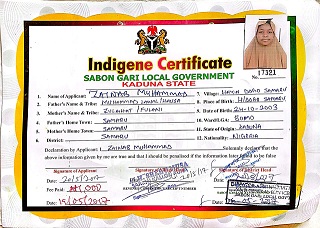 17321
Indigene Certificate
SABON GARI LOCAL GOVERNMENT
KADUNA STATE
1. Name of Applicant: ZAINAB MUHAMMAD
2. Father's Name & Tribe: MUHAMMAD LAWAL/HAUSA
3. Mother's Name & Tribe: ZULAIHAT/FULANI
4. Father's Home Town: SAMARU
5. Mother's Home Town: SAMARU
6. District: SAMARU
7. Village: HAYIN DOGO SAMARU
8. Place of Birth: H/DOGO SAMARU
9. Date of Birth: 24-10-2003
10. Ward/LGA: BOMO
11. State of Origin: KADUNA
12. Nationality: NIGERIA
Declaration by Applicant I ZAINAB MUHAMMAD Solemnly declare that the
above information given by me are true and that I should be penalised if the information later found to be false
Signature of Applicant
Date: 20/5/2017
Fee Paid: #1,000
Date: 19/05/2017
Signature of Village Head